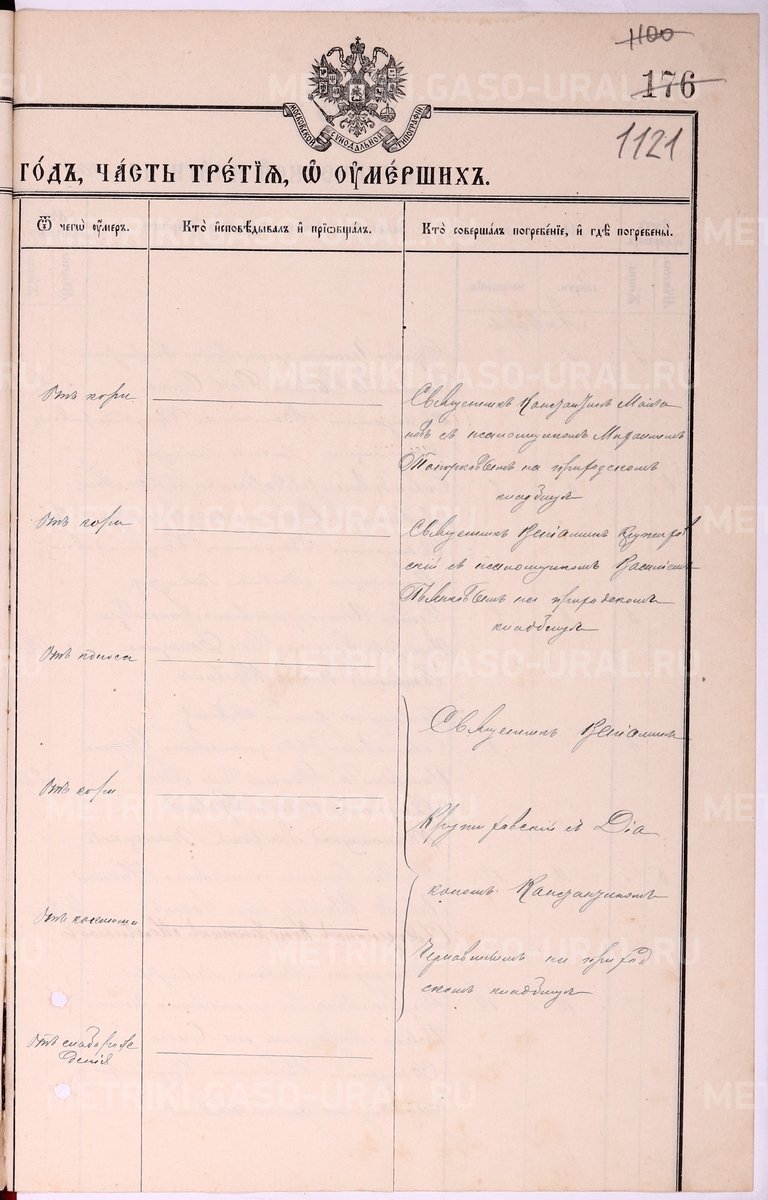 1100
176
1121
МОСКОВСКОЙ СѴНОДАЛЬНОЙ ТИПОГРАФІИ
го́дъ, ча́сть тре́тїѧ, ѡ҆ ᲂу҆ме́ршихъ.
Ѿ чегѡ̀ ᲂу҆́меръ.
Кто̀ и҆сповѣ́дывалъ и҆ прїѡбща́лъ.
Кто̀ соверша́лъ погребе́нїе, и҆ гдѣ̀ погребены̀.
Отъ кори
Священникъ Константинъ
новъ съ псаломщикомъ
Топорковымъ на приходскомъ
кладбищѣ
Отъ кори
Священникъ Веніаминъ
скій съ псаломщикомъ Василіемъ
Пьянковымъ на приходскомъ
кладбищѣ
Отъ поноса
Священникъ Веніаминъ
Отъ кори
съ Діа
кономъ Константиномъ
Отъ
Чернавинымъ на приход
скомъ кладбищѣ
Отъ слаборож
денія
METRIKI.GASO-URAL.RU